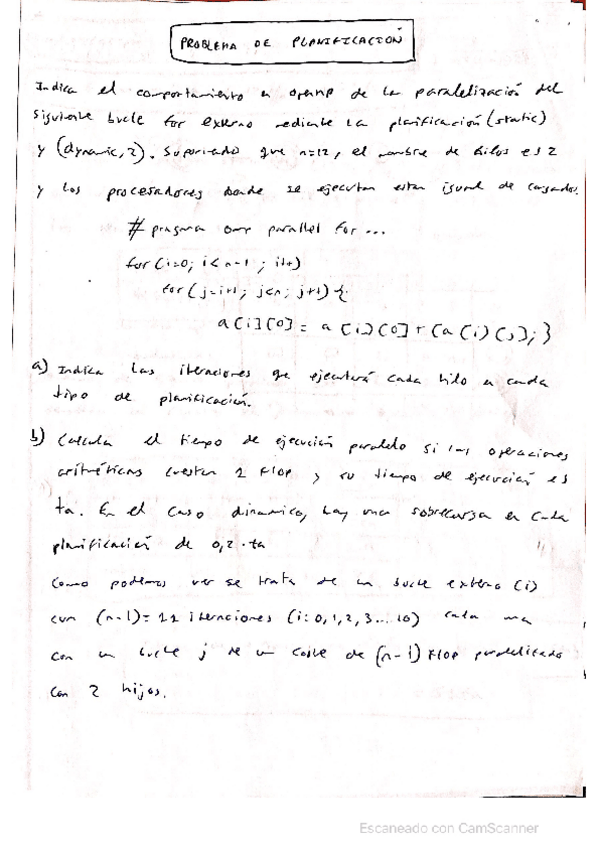 PROBLEMA DE PLANIFICACIÓN
Indica el comportamiento en openmp de la paralelización del
siguiente bucle for externo mediante la planificación (static)
y (dynamic, 2). Suponiendo que n=12, el nombre de hilos es 2
y los procesadores donde se ejecutan estan igual de cargados.
# pragma omp parallel for ...
for (i=0; i<n-1; i++)
for (j=i+1; j<n; j++) {
a[i][0] = a[i][0] + (a[i][j]; }
a) Indica las iteraciones que ejecutará cada hilo en cada
tipo de planificación.
b) Calcula el tiempo de ejecución paralelo si las operaciones
aritméticas cuestan 1 FLOP y su tiempo de ejecución es
ta. En el caso dinamico, hay una sobrecarga en cada
planificación de 0,2·ta
Como podemos ver se trata de un bucle externo (i)
con (n-1)=11 iteraciones (i:0,1,2,3...10) cada una
con un bucle j de un coste de (n-1) FLOP paralelizado
con 2 hijos.
Escaneado con CamScanner